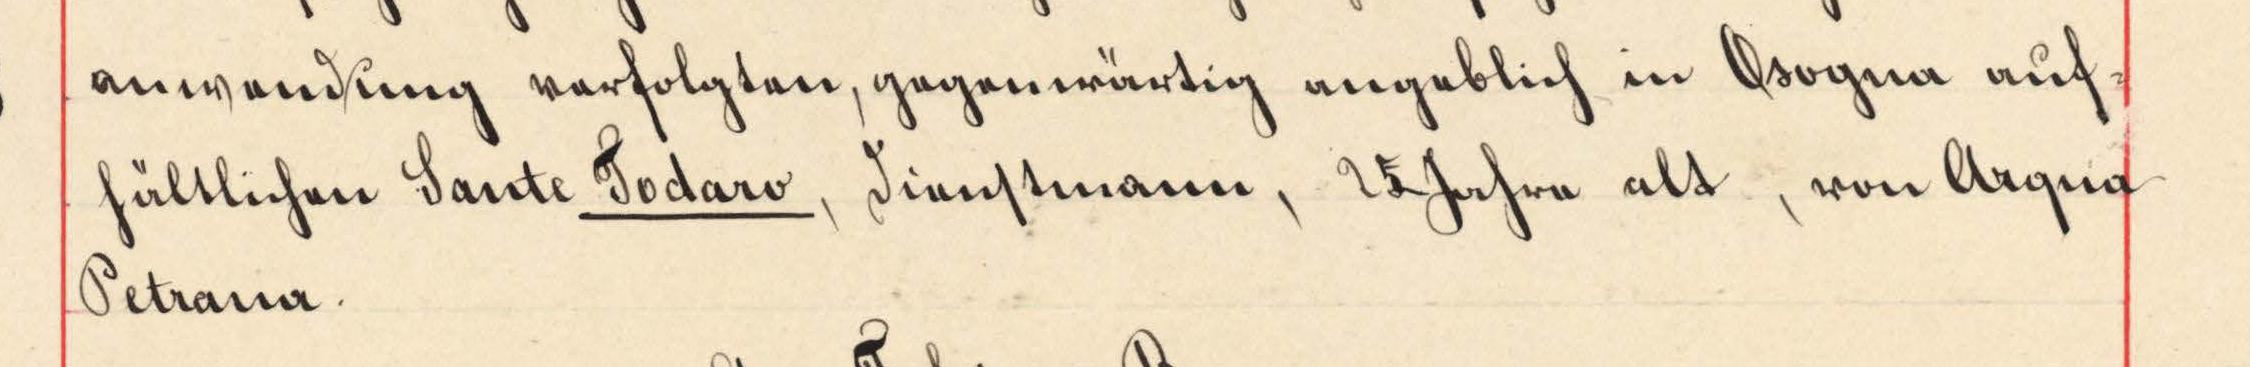 anwendung verfolgten, gegenwärtig angeblich in Osogna auf-
hältlichen Sante Todaro, Dienstmann, 25 Jahre alt, von Arqua
Petrana.